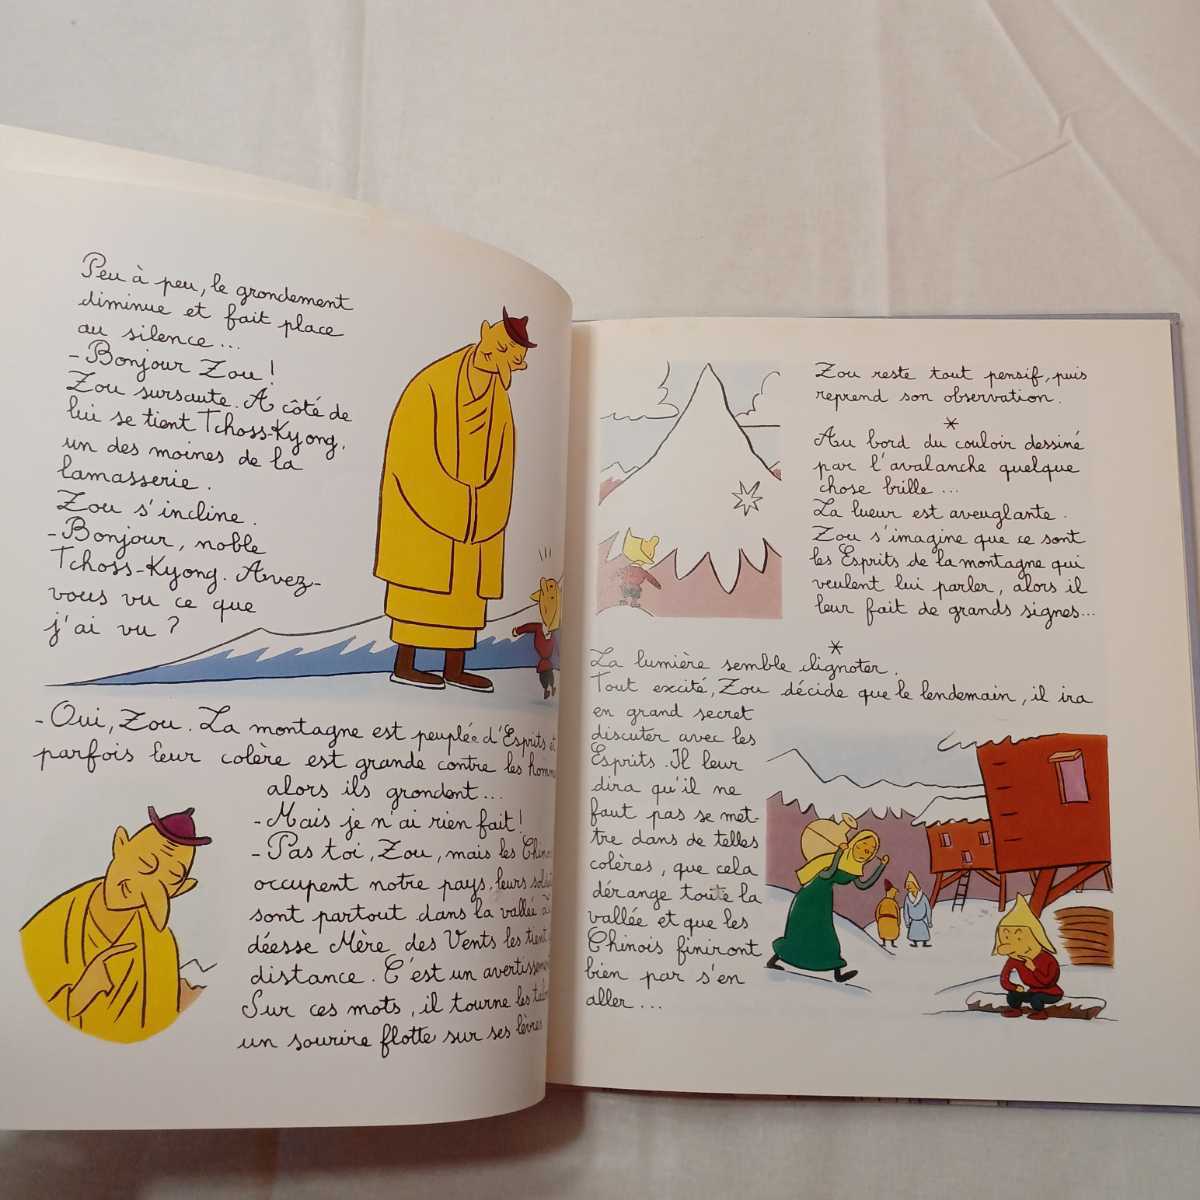 Peu à peu, le grondement
diminue et fait place
au silence...
- Bonjour Zou !
Zou sursaute. À côté de
lui se tient Tchoss-Kyong,
un des moines de la
lamasserie.
Zou s'incline.
- Bonjour, noble
Tchoss-Kyong. Avez-
vous vu ce que
j'ai vu ?
- Oui, Zou. La montagne est peuplée d'Esprits et
parfois leur colère est grande contre les
alors ils grondent...
- Mais je n'ai rien fait !
- Pas toi, Zou, mais les
occupent notre pays, leurs
sont partout dans la vallée
déesse Mère des Vents les tient
distance. C'est un avertissement
Sur ces mots, il tourne les
un sourire flotte sur ses lèvres
Zou reste tout pensif, puis
reprend son observation.
*
Au bord du couloir dessiné
par l'avalanche quelque
chose brille...
La lueur est aveuglante.
Zou s'imagine que ce sont
les Esprits de la montagne qui
veulent lui parler, alors il
leur fait de grands signes...
*
La lumière semble clignoter.
Tout excité, Zou décide que le lendemain, il ira
en grand secret
discuter avec les
Esprits. Il leur
dira qu'il ne
faut pas se met-
tre dans de telles
colères, que cela
dérange toute la
vallée et que les
Chinois finiront
bien par s'en
aller...